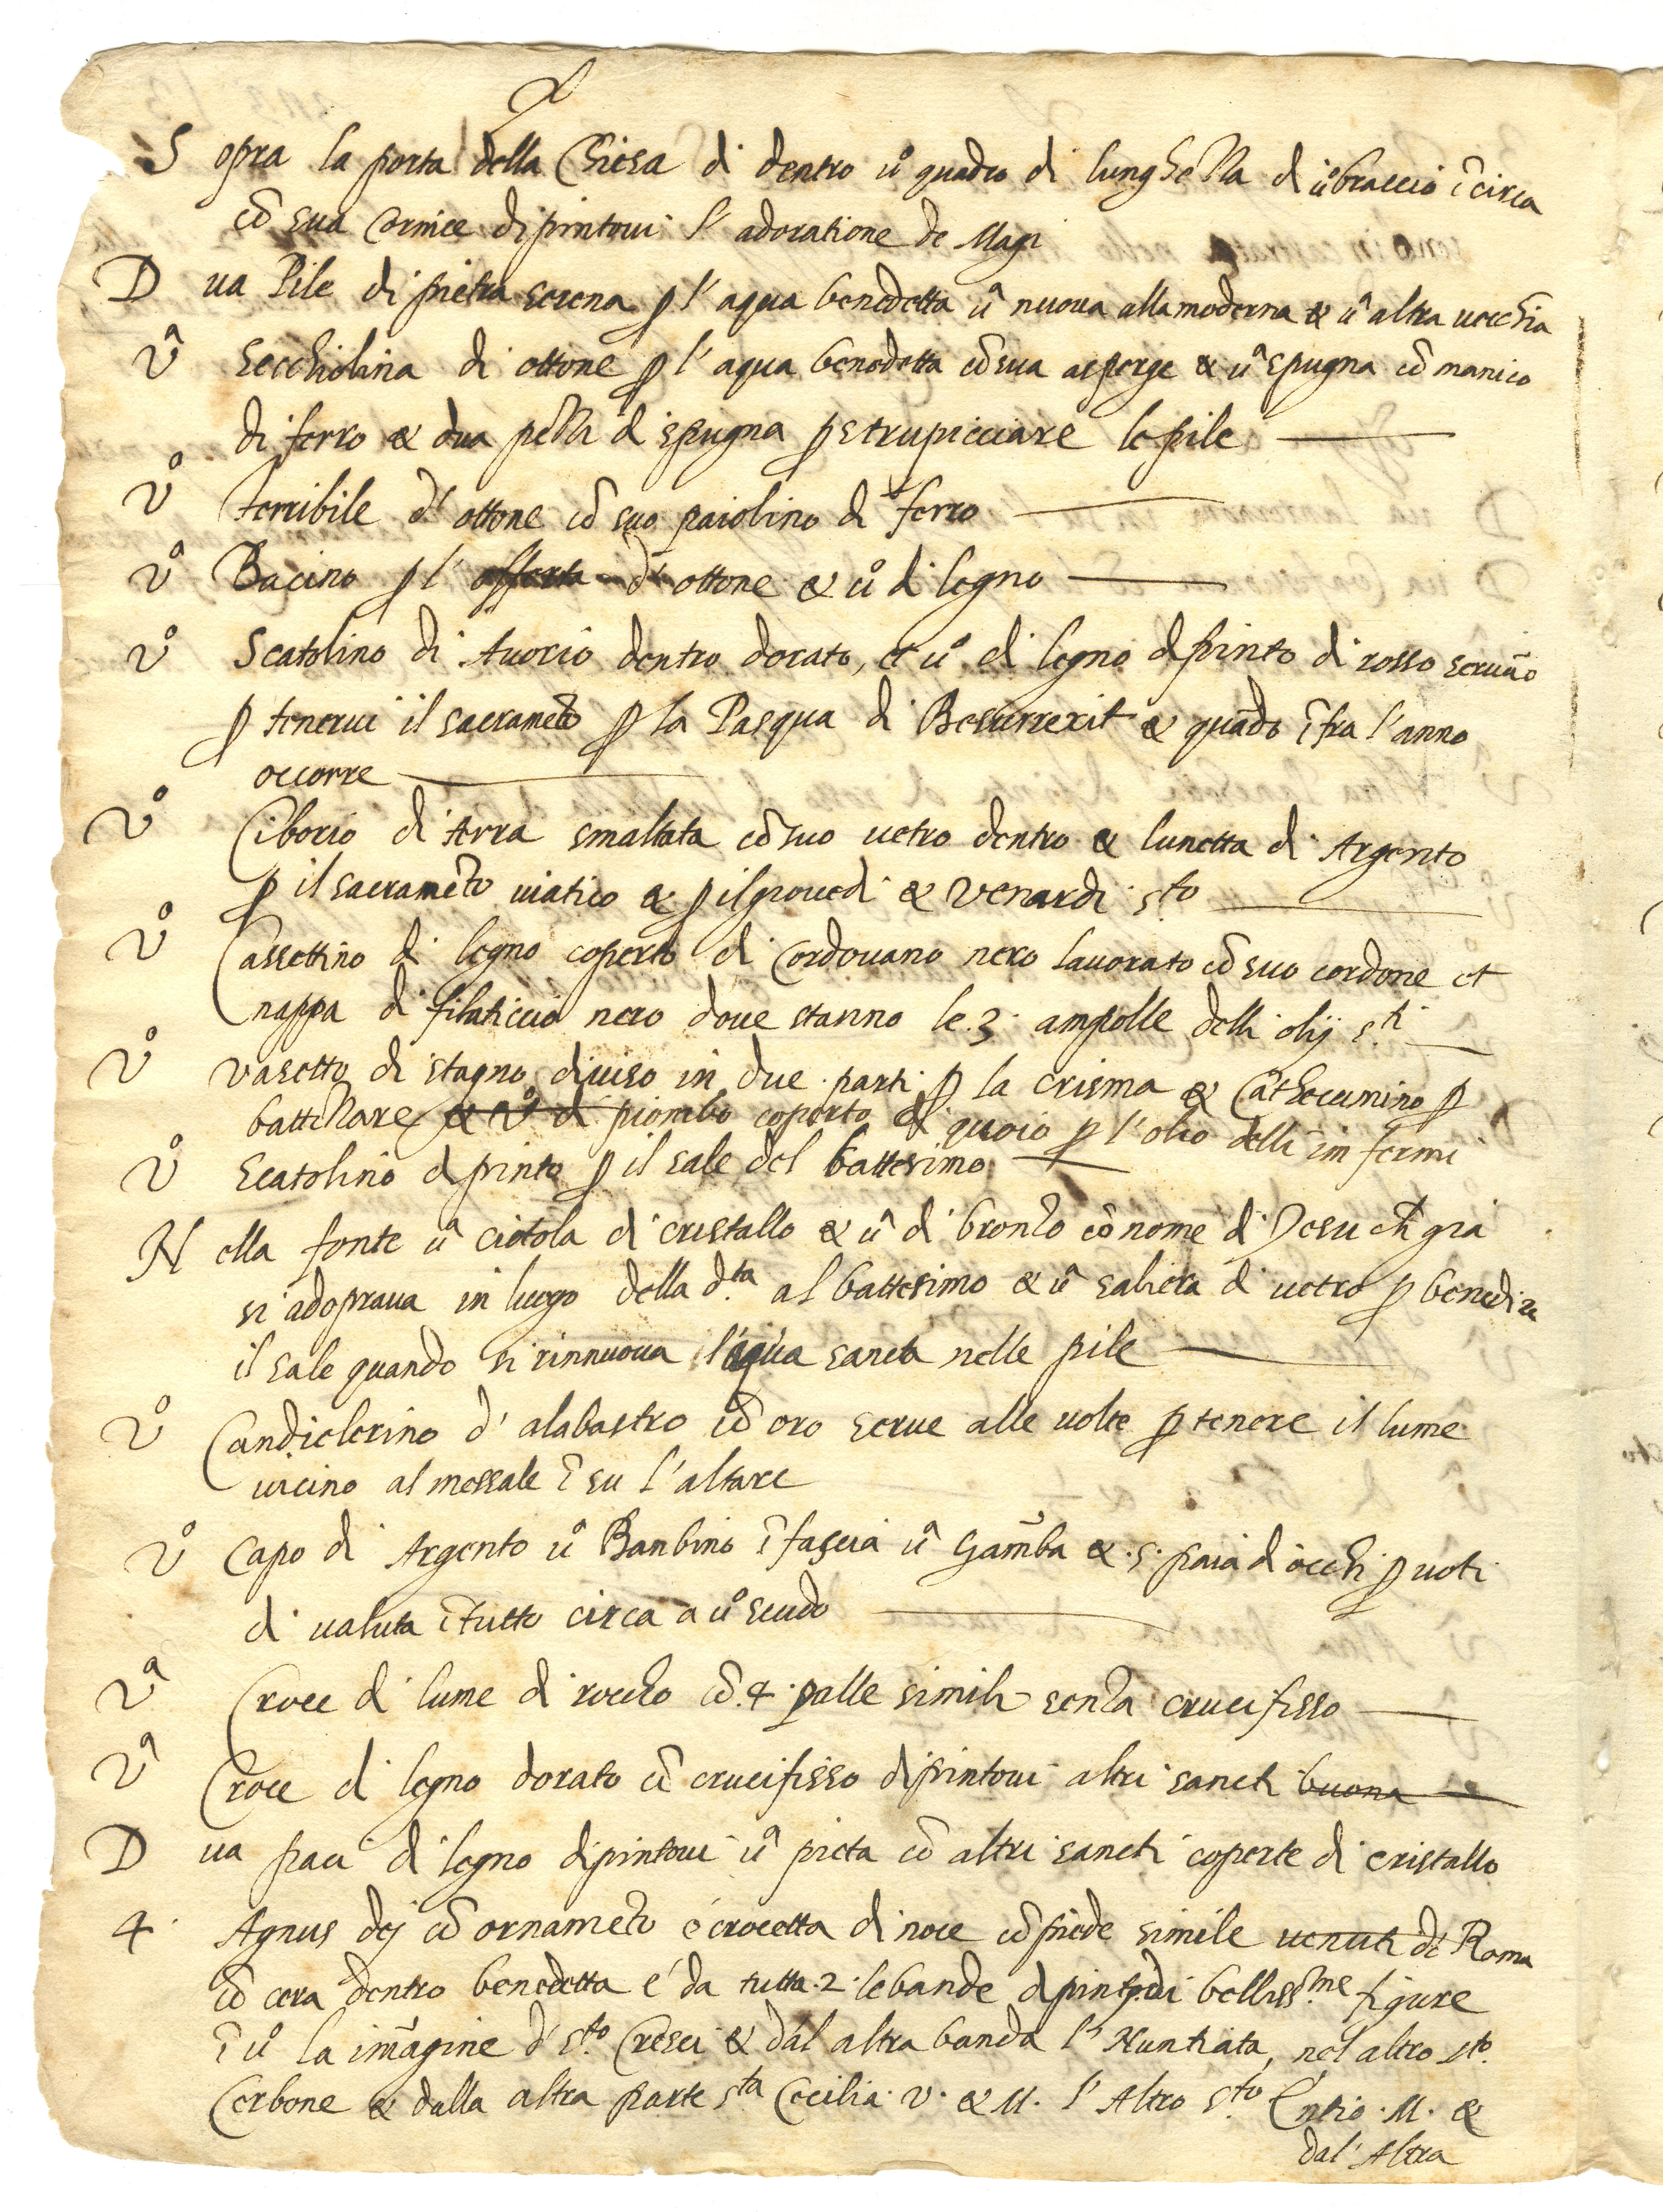 Sopra la porta della Chiesa di dentro uº quadro di lunghezza di uº braccio ī circa
cō sua Cornice dipintoui l'adoratione de Magi
Dua Pile di pietra serena p l'aqua benedetta uª nuoua alla moderna & uª altra uecchia
Vª Secchiolina di ottone p l'aqua benedetta cō sua asperge & uª spugna cō manico
di ferro & dua pezzi di spugna p strupicciare le pile
Vº terribile d'ottone cō suo paiolino di ferro
Vº Bacino p l'offerta d'ottone & uº di legno
Vº Scatolino di Auorio dentro dorato, et uº di legno dipinto di rosso seruāo
p tenerui il sacramēto p la Pasqua di Resurrexit & quādo ī fra l'anno
occorre
Vº Ciborio di terra smaltata cō suo uetro dentro & lunetta di Argento
p il sacramēto uiatico & p il giouedi & Venardi sto
Vº Cassettino di legno coperto di Cordouano nero lauorato cō suo cordone et
nappa di filaticcio nero doue stanno le 3 ampolle delli olij s.ti
Vº Vasetto di stagno diuiso in due parti p la crisma & Cathecumino p
battezzare & Vº di piombo coperto di quoio p l'olio delli infermi
Vº Scatolino dipinto p il sale del battesimo
Nella fonte uª ciotola di cristallo & uª di bronzo cō nome di Jesu ch già
si adoprava in luogo della d.ta al battesimo & uª saliera di uetro p benedire
il sale quando si rinnuoua l'aqua sancta nelle pile
Vº Candielerino d'alabastro cō oro serue alle uolte p tenere il lume
uicino al messale ī su l'altare
Vº Capo di Argento uº Banbino ī fascia uª Gāmba & .5. paia d'occhi p uoti
di ualuta ī tutto circa a uº scudo
Vª Croce di lume di roccho cō .4. palle simili senza crucifisso
Vª Croce di legno dorato cō crucifisso dipintoui altri sancti buona
Dua paci di legno dipintoui uª pieta cō altri sancti coperte di cristallo
4. Agnus dej cō ornamēto é crocetta di noce cō piede simile uenuti di Roma
cō cera dentro benedetta é da tutta .2. le bande dipintoui belliss.me figure
ī uº la imāgine di s.to Cresci & dal altra banda l'Nuntiata, nel altro sto.
Cerbone & dalla altra parte sta Cecilia V. & M. l'Altro s.to Entio .M. &
dal'Altra